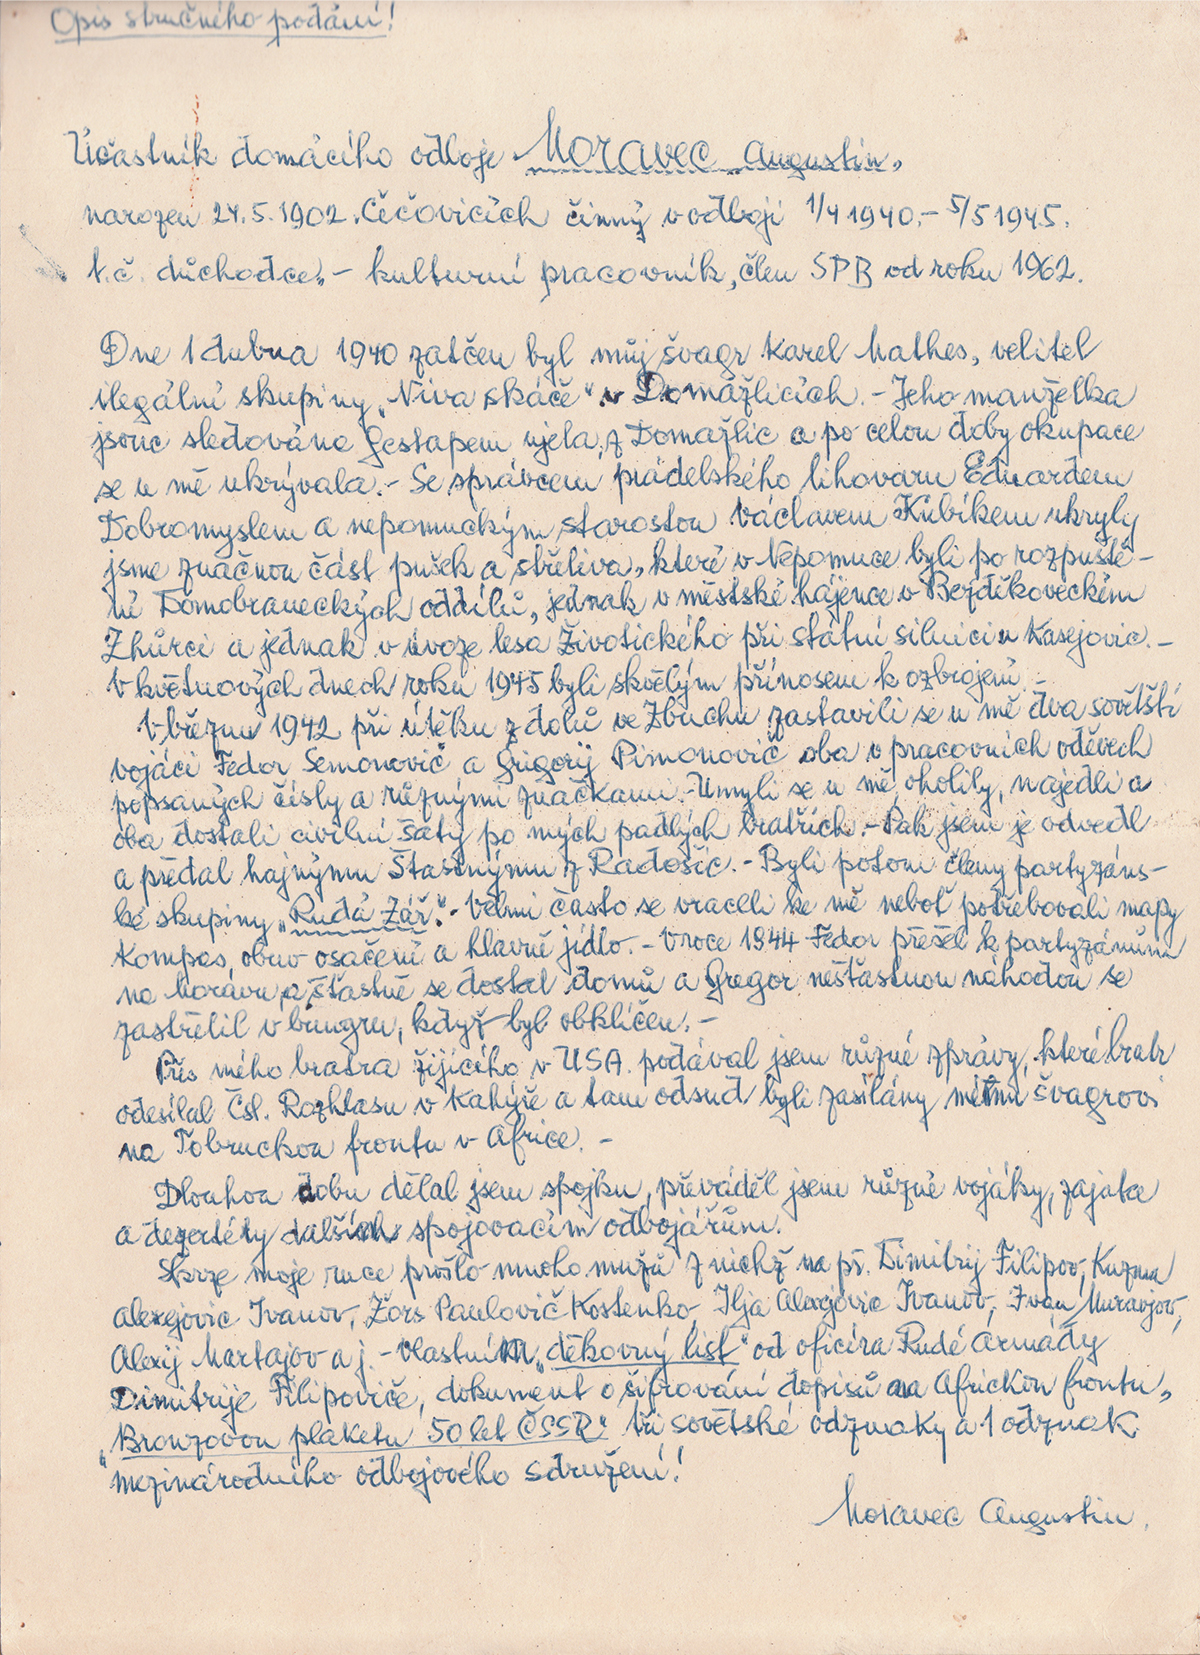 Opis stručného podání!
Účastník domácího odboje Moravec Augustin,
narozen 24.5.1902. Čečovicích činný v odboji 1/4 1940.- 5/5 1945.
t.č. důchodce. - kulturní pracovník, člen SPB od roku 1962.
Dne 1 dubna 1940 zatčen byl můj švagr Karel Mathes, velitel
ilegální skupiny „Niva skáče" v Domažlicích. - Jeho manželka
jsouc sledována Gestapem ujela z Domažlic a po celou doby okupace
se u mě ukrývala. - Se správcem prádelského lihovaru Eduardem
Dobromyslem a nepomuckým starostou Václavem Kubíkem ukryly
jsme značnou část pušek a střeliva, které v Nepomuce byli po rozpuště-
ní Domobraneckých oddílů, jednak v městské hájence v Bezděkoveckém
Zhůrci a jednak v úvoze lesa Životického při státní silnici u Kasejovic. -
V květnových dnech roku 1945 byli skvělým přínosem k ozbrojení. -
V březnu 1942 při útěku z dolů ve Zbuchu zastavili se u mě dva sovětští
vojáci Fedor Semonovič a Grigorij Pimonovič oba v pracovních oděvech
popsaných čísly a různými značkami. - Umyli se u mě, oholily, najedli a
oba dostali civilní šaty po mých padlých bratřích. - Pak jsem je odvedl
a předal hajnýmu Štastnýmu z Radošic. - Byli potom členy partyzáns-
ké skupiny „Rudá Zář". - Velmi často se vraceli ke mě neboť potřebovali mapy
Kompas, obuv osačení a hlavně jídlo. - V roce 1944 Fedor přešel k partyzánům
na Moravu, a šťastně se dostal domů a Gregor nešťastnou náhodou se
zastřelil v bungru, když byl obklíčen. -
Přes mého bratra žijícího v USA. podával jsem různé zprávy, které bratr
odesílal Čsl. Rozhlasu v Kahýře a tam odsud byli zasílány mému švagrovi
na Tobruckou frontu v Africe. -
Dlouhou dobu dělal jsem spojku, převáděl jsem různé vojáky, zajatce
a dezertéty dalším spojovacím odbojářům.
Skrze moje ruce prošlo mnoho mužů z nichž na př. Dimitrij Filipov, Kuzma
Alexejovic Ivanov, Žors Paulovič Kostenko, Ilja Alexejovic Ivanov, Ivan Muravjov,
Alexij Martajov a j. - Vlastním „děkovný list" od oficíra Rudé Armády
Dimitrije Filipoviče, dokument o šifrování dopisů na Africkou frontu,
„Bronzovou plaketu 50 let ČSSR" tři sovětské odznaky a 1 odznak
mezinárodního odbojového sdružení!
Moravec Augustin.